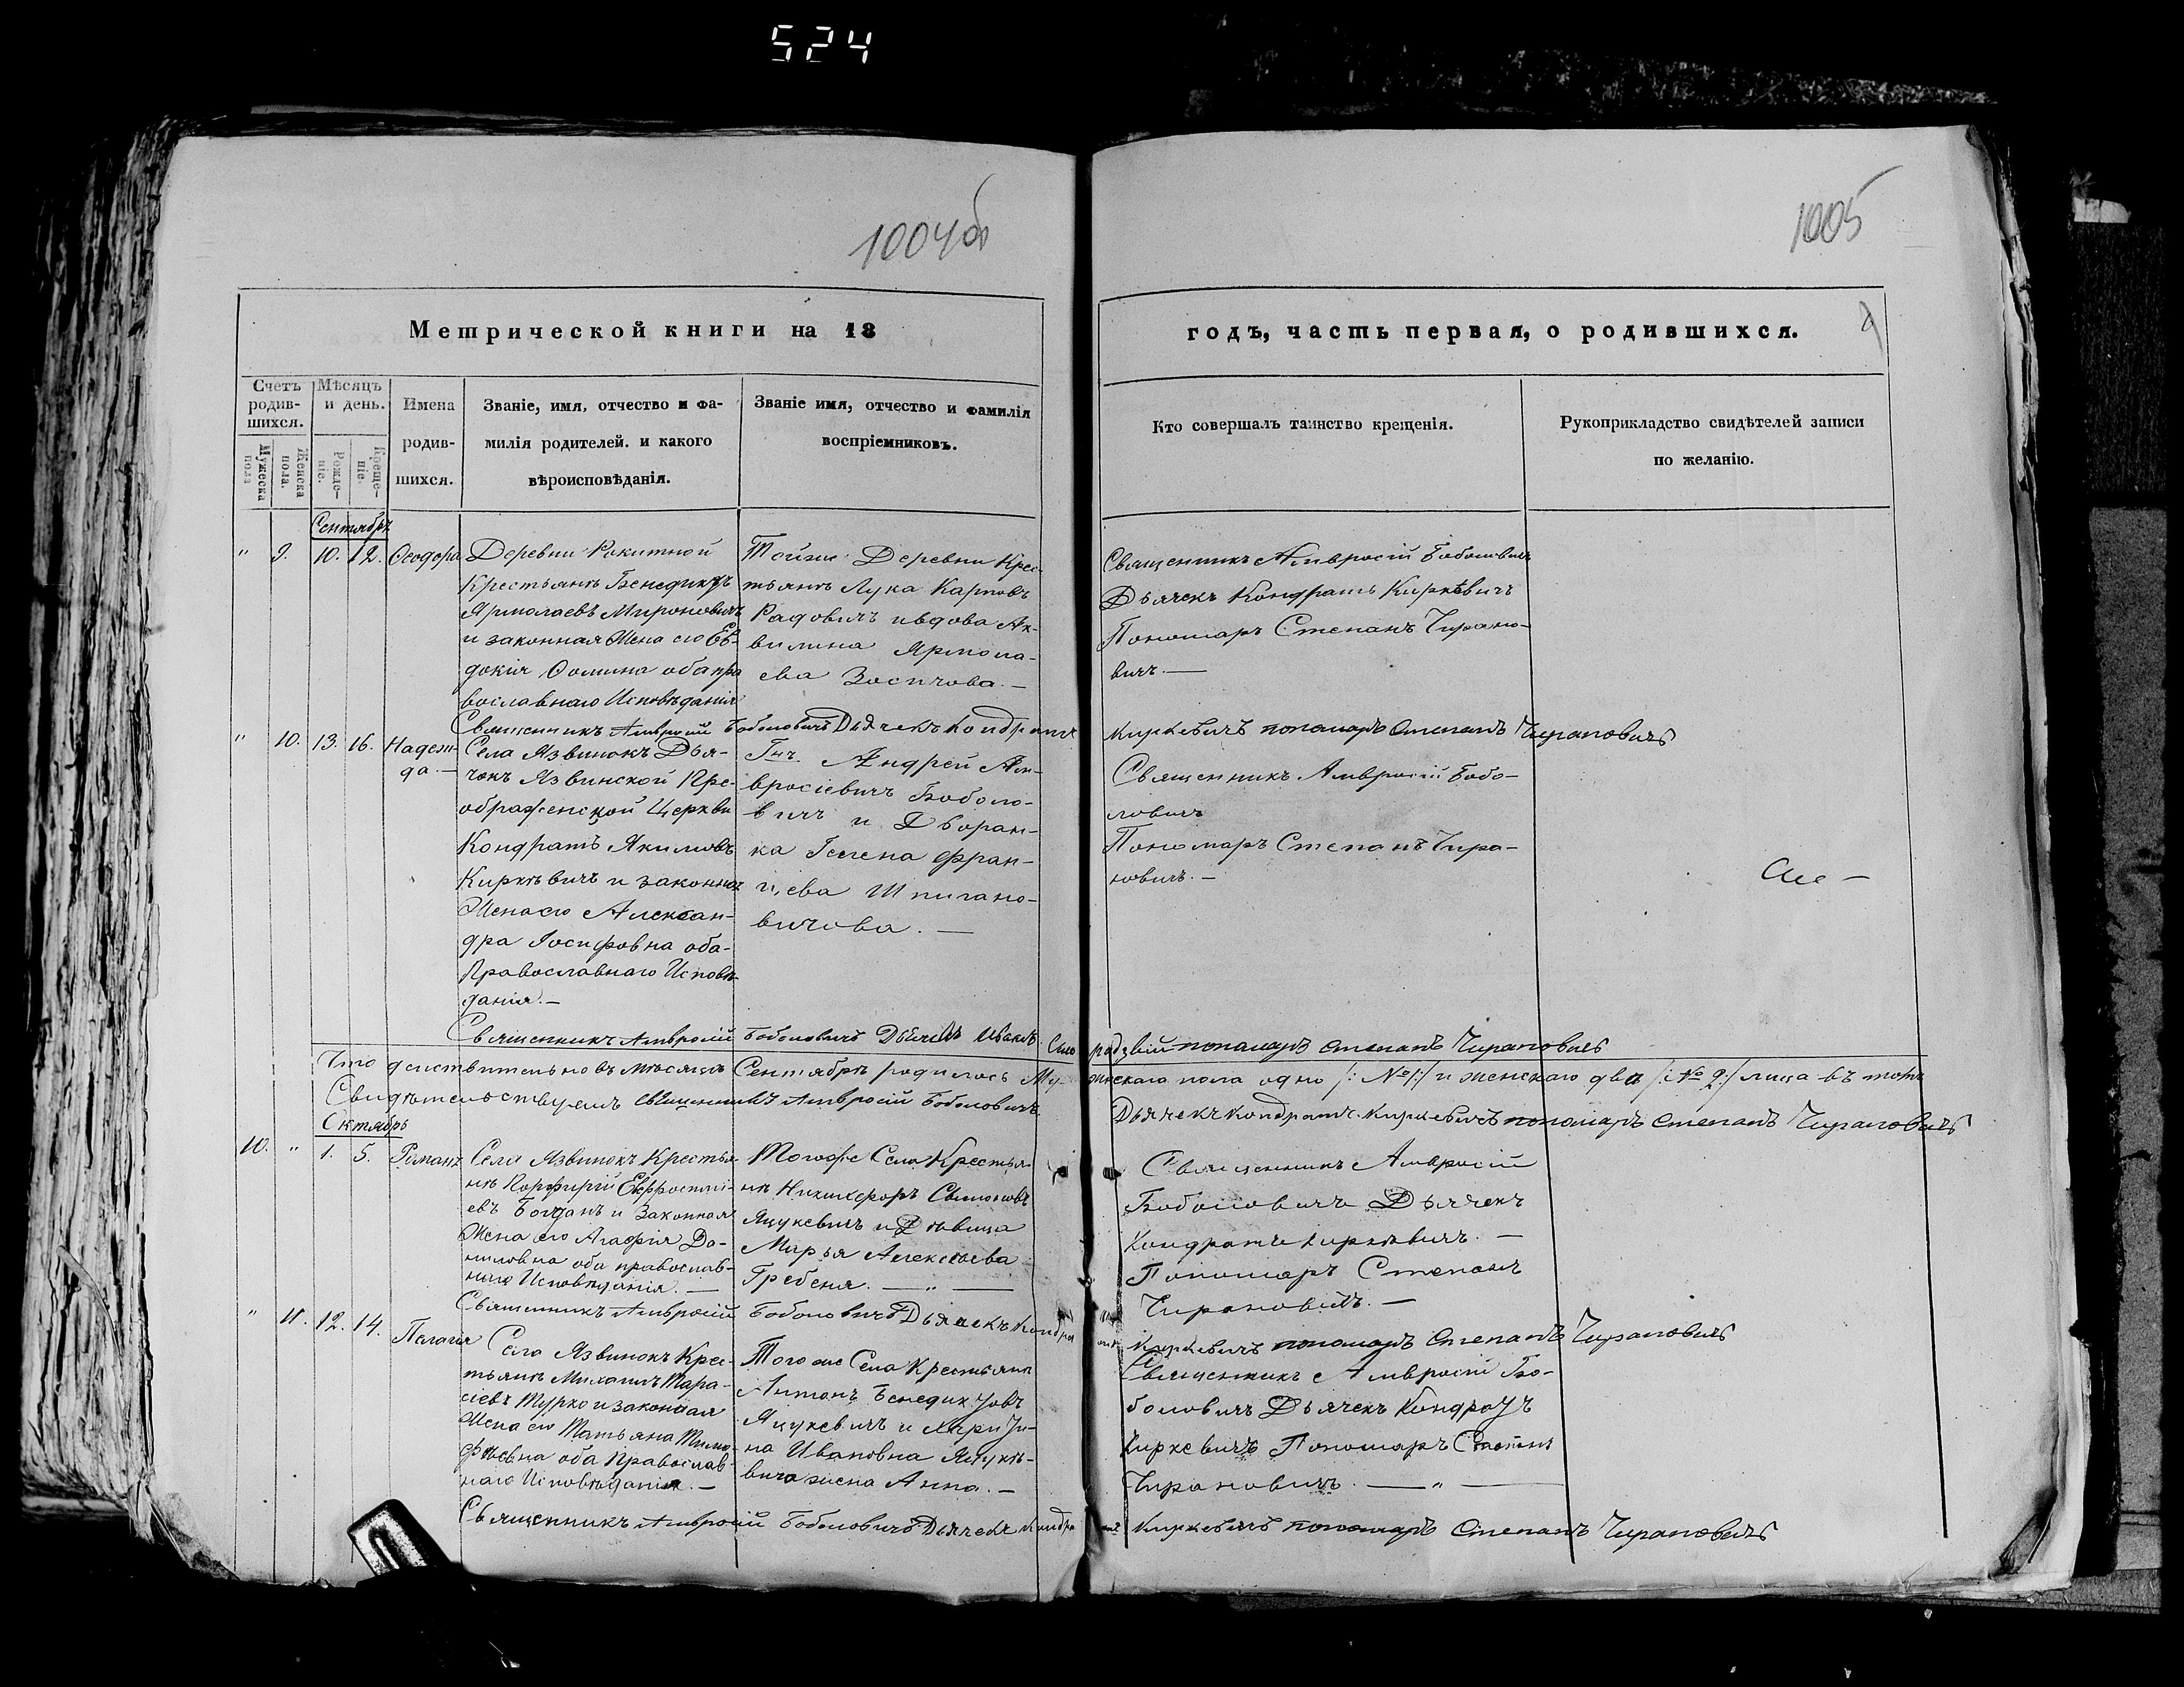 524
1004об
1005
Метрической книги на 18
годъ, часть первая, о родившихся.
Счетъ родив-шихся.
Мужеска пола
Женска пола.
Мѣсяцъ и день.
Рожде-ніе.
Креще-ніе.
Имена родив-шихся.
Званіе, имя, отчество и фа-
милія родителей. и какого
вѣроисповѣданія.
Званіе имя, отчество и фамилія
воспріемниковъ.
Кто совершалъ таинство крещенія.
Рукоприкладство свидѣтелей записи
по желанію.
Сентябрь
" 9. 10. 12. Ѳеодора
Деревни Рокитной
Крестьянъ Бенедиктъ
Ярмолаевъ Мироновичъ
и законная Жена его Ев-
докія Ѳомина оба пра
вославнаго Исповѣданія
Тойже Деревни Крес-
тьянъ Лука Карповъ
Радовичъ и вдова Ак-
вилина Ярмола-
ева Зосичова. —
Священникъ Амвросій Боболовичъ
Дьячекъ Кондратъ Киркевичъ
Пономаръ Степанъ Чирано-
вичъ. —
Священникъ Амвросій Боболовичъ Дьячекъ Кондратъ Киркевичъ пономаръ Степанъ Чирановичъ
" 10. 13. 16. Надеж-
да. —
Села Язвинокъ Дья-
чокъ Язвинской Пре-
ображенской Церкви
Кондратъ Якимовъ
Киркѣвичъ и законная
Жена его Алексан-
дра Іосифовна оба-
Православнаго Исповѣ-
данія. —
Гнъ. Андрей Ам-
вросіевичъ Боболо-
вичъ и Дворян-
ка Гелена Фран-
цева Шпигано-
вичова. —
Священникъ Амвросій Бобо-
ловичъ
Пономаръ Степанъ Чира-
новичъ. —
Священникъ Амвросій Боболовичъ Дьячекъ Иванъ пономаръ Степанъ Чирановичъ
Что дѣйствительно въ мѣсяцѣ Сентябрѣ родилось Мужескаго пола одно /: №1:/ и женскаго два /: № 2:/ лица въ томъ
Свидѣтельствуемъ Священникъ Амвросій Боболовичъ Дьячекъ Кондратъ Киркевичъ пономаръ Степанъ Чирановичъ
Октябрь
10. " 1. 5. Романъ
Села Язвинокъ Крестья-
нъ Порфирій Евфростіи-
евъ Богданъ и Законная
Жена его Агафія Да-
ниловна оба православ-
наго Исповѣданія. —
Тогожъ Села Крестья-
нъ Никифоръ Симоновъ
Яцукевичъ и Дѣвица
Марья Алексѣева
Гребеня. — " —
Священникъ Амвросій
Боболовичъ Дьячекъ
Кондратъ Киркѣвичъ. —
Пономаръ Степанъ
Чирановичъ. —
Священникъ Амвросій Боболовичъ Дьячекъ Кондратъ Киркевичъ пономаръ Степанъ Чирановичъ
" 11. 12. 14. Пелагія
Села Язвинокъ Крес-
тьянъ Михаилъ Тара-
сіевъ Турко и законная
Жена его Татьяна Тимо-
фѣевна оба Православ-
наго Исповѣданія. —
Того же Села Крестьянъ
Антонъ Бенедиктовъ
Яцукевичъ и Харити-
на Ивановна Яцукѣ-
вича жена Анна. —
Священникъ Амвросій Бо-
боловичъ Дьячекъ Кондратъ
Киркевичъ Пономаръ Степанъ
Чирановичъ. — " —
Священникъ Амвросій Боболовичъ Дьячекъ Кондратъ Киркевичъ пономаръ Степанъ Чирановичъ